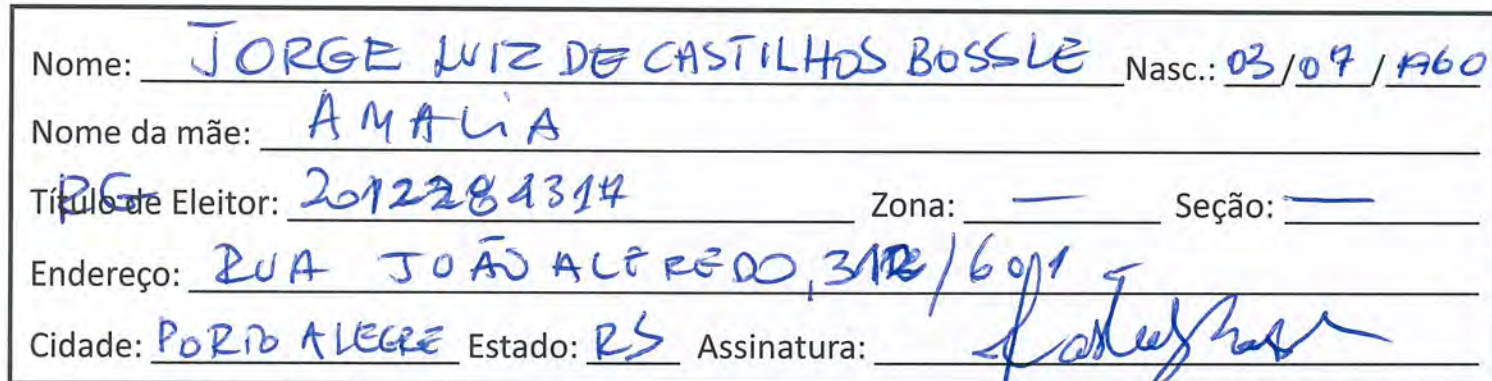 Nome: JORGE LUIZ DE CASTILHOS BOSSLE Nasc.: 03/07/1960
Nome da mãe: AMALIA
RG Título de Eleitor: 2012284317 Zona: — Seção: —
Endereço: RUA JOÃO ALFREDO, 312/601
Cidade: PORTO ALEGRE Estado: RS Assinatura: